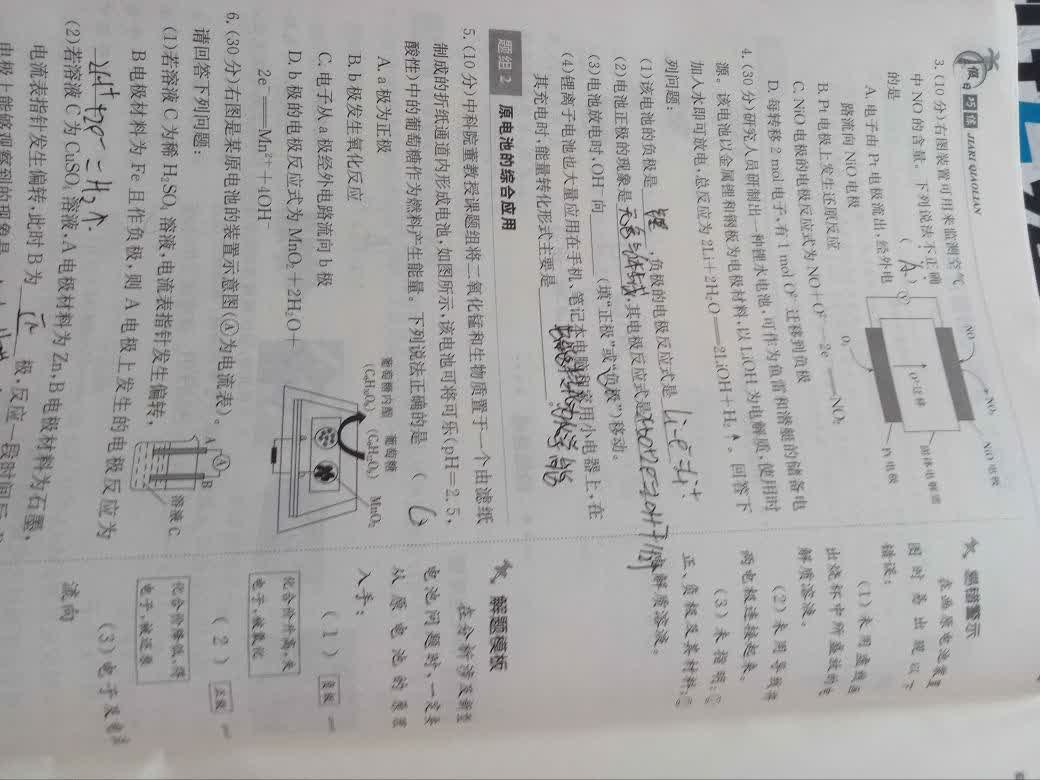 假日巧练 JIARI QIAOLIAN
3.(10分)右图装置可用来监测空气
中NO的含量。下列说法不正确
的是 ( A )
A.电子由Pt电极流出,经外电
路流向NiO电极
B.Pt电极上发生还原反应
C.NiO电极的电极反应式为NO+O²⁻-2e⁻══NO₂
D.每转移2 mol电子,有1 mol O²⁻迁移到负极
NO
NO₂
NiO电极
O²⁻迁移
固体电解质
O₂
Pt电极
4.(30分)研究人员研制出一种锂水电池,可作为鱼雷和潜艇的储备电
源。该电池以金属锂和钢板为电极材料,以LiOH为电解质,使用时
加入水即可放电,总反应为2Li+2H₂O══2LiOH+H₂↑。回答下
列问题:
(1)该电池的负极是 锂 ,负极的电极反应式是 Li-e⁻=Li⁺
(2)电池正极的现象是 ,其电极反应式是
(3)电池放电时,OH⁻向 (填“正极”或“负极”)移动。
(4)锂离子电池也大量应用在手机、笔记本电脑等家用小电器上,在
其充电时,能量转化形式主要是 。
题组2 原电池的综合应用
5.(10分)中科院董教授课题组将二氧化锰和生物质置于一个由滤纸
制成的折纸通道内形成电池,如图所示,该电池可将可乐(pH=2.5,
酸性)中的葡萄糖作为燃料产生能量。下列说法正确的是 ( )
A.a极为正极
B.b极发生氧化反应
C.电子从a极经外电路流向b极
D.b极的电极反应式为MnO₂+2H₂O+
2e⁻══Mn²⁺+4OH⁻
葡萄糖内酯 葡萄糖
(C₆H₁₀O₆) (C₆H₁₂O₆) MnO₂
6.(30分)右图是某原电池的装置示意图(Ⓐ为电流表)。
请回答下列问题:
(1)若溶液C为稀H₂SO₄溶液,电流表指针发生偏转,
B电极材料为Fe且作负极,则A电极上发生的电极反应为
2H⁺+2e⁻=H₂↑.
A
B
溶液C
(2)若溶液C为CuSO₄溶液,A电极材料为Zn,B电极材料为石墨,
电流表指针发生偏转,此时B为 正 极,反应一段时间后,
电极上能够观察到的现象是
易错警示
在画原电池装置
图时易出现以下
错误:
(1)未用虚线画
出烧杯中所盛放的电
解质溶液。
(2)未用导线将
两电极连接起来。
(3)未指明:①
正、负极及其材料;②
电解质溶液。
解题模板
在分析涉及新型
电池问题时,一定要
从原电池的本质
入手:
(1) 负极 —
化合价升高,失
电子,被氧化
(2) 正极 —
化合价降低,得
电子,被还原
(3)电子及电流
流向